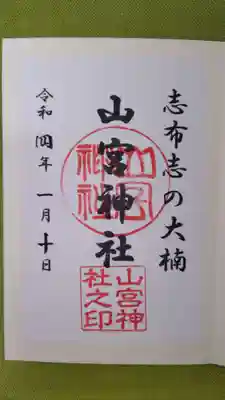 志布志の大楠
山宮神社
山宮神社之印
令和四年一月十日